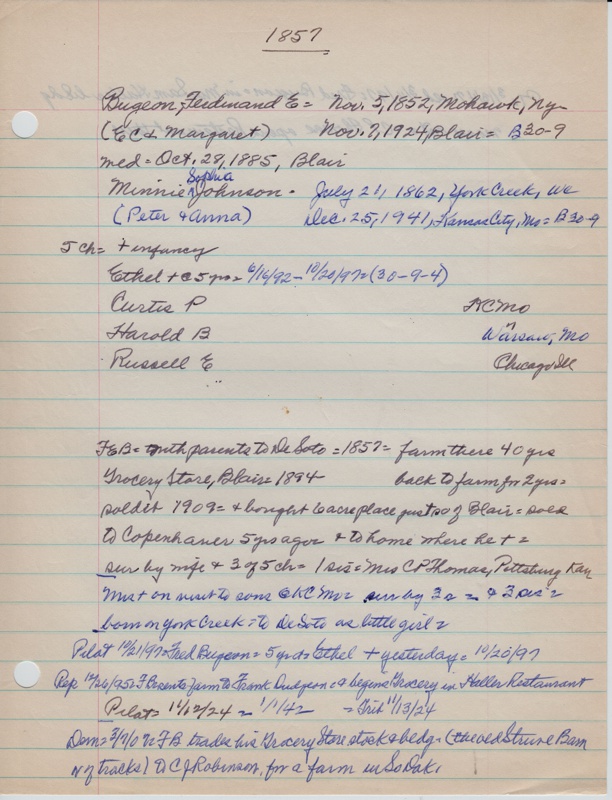 1857
Bugeon, Ferdinand E = Nov. 5, 1852, Mohawk, Ny
(E C & Margaret) Nov. 7, 1924, Blair = B30-9
med = Oct. 28, 1885, Blair
Sophia
Minnie Johnson. July 21, 1862, York Creek, We
(Peter & Anna) Dec. 25, 1941, Kansas City, Mo = B30-9
5 ch = + infancy
Ethel + @ 5 yrs = 6/16/92 - 10/20/97 = (30-9-4)
Curtis P KC Mo
Harold B Warsaw, Mo
Russell E Chicago Ill
FEB = with parents to DeSoto = 1857 = farm there 40 yrs
Grocery Store, Blair = 1894 back to farm for 2 yrs =
sold it 1909 = & bought 6 acre place just of Blair = sold
to Copenhaver 5 yrs ago & to home where he + =
sur by wife & 3 of 5 ch = 1 sis = Mrs C P Thomas, Pittsburg Kan
Mrs + on visit to sons @ KC Mo = sur by 3 s = & 3 sis =
born on York Creek = to DeSoto as little girl =
Pilot 10/21/97 = Fred Bugeon = 5 yrd = Ethel + yesterday = 10/20/97
Rep 12/26/95 = F B rents farm to Frank Dudgeon & begins Grocery in Haller Restaurant
Pilot = 11/12/24 = 1/1/42 = Trib 11/13/24
Dem = 3/7/02 F B trades his Grocery Store stock & bldg = (the old Struve Barn
N of tracks) to C J Robinson, for a farm in So Dak.